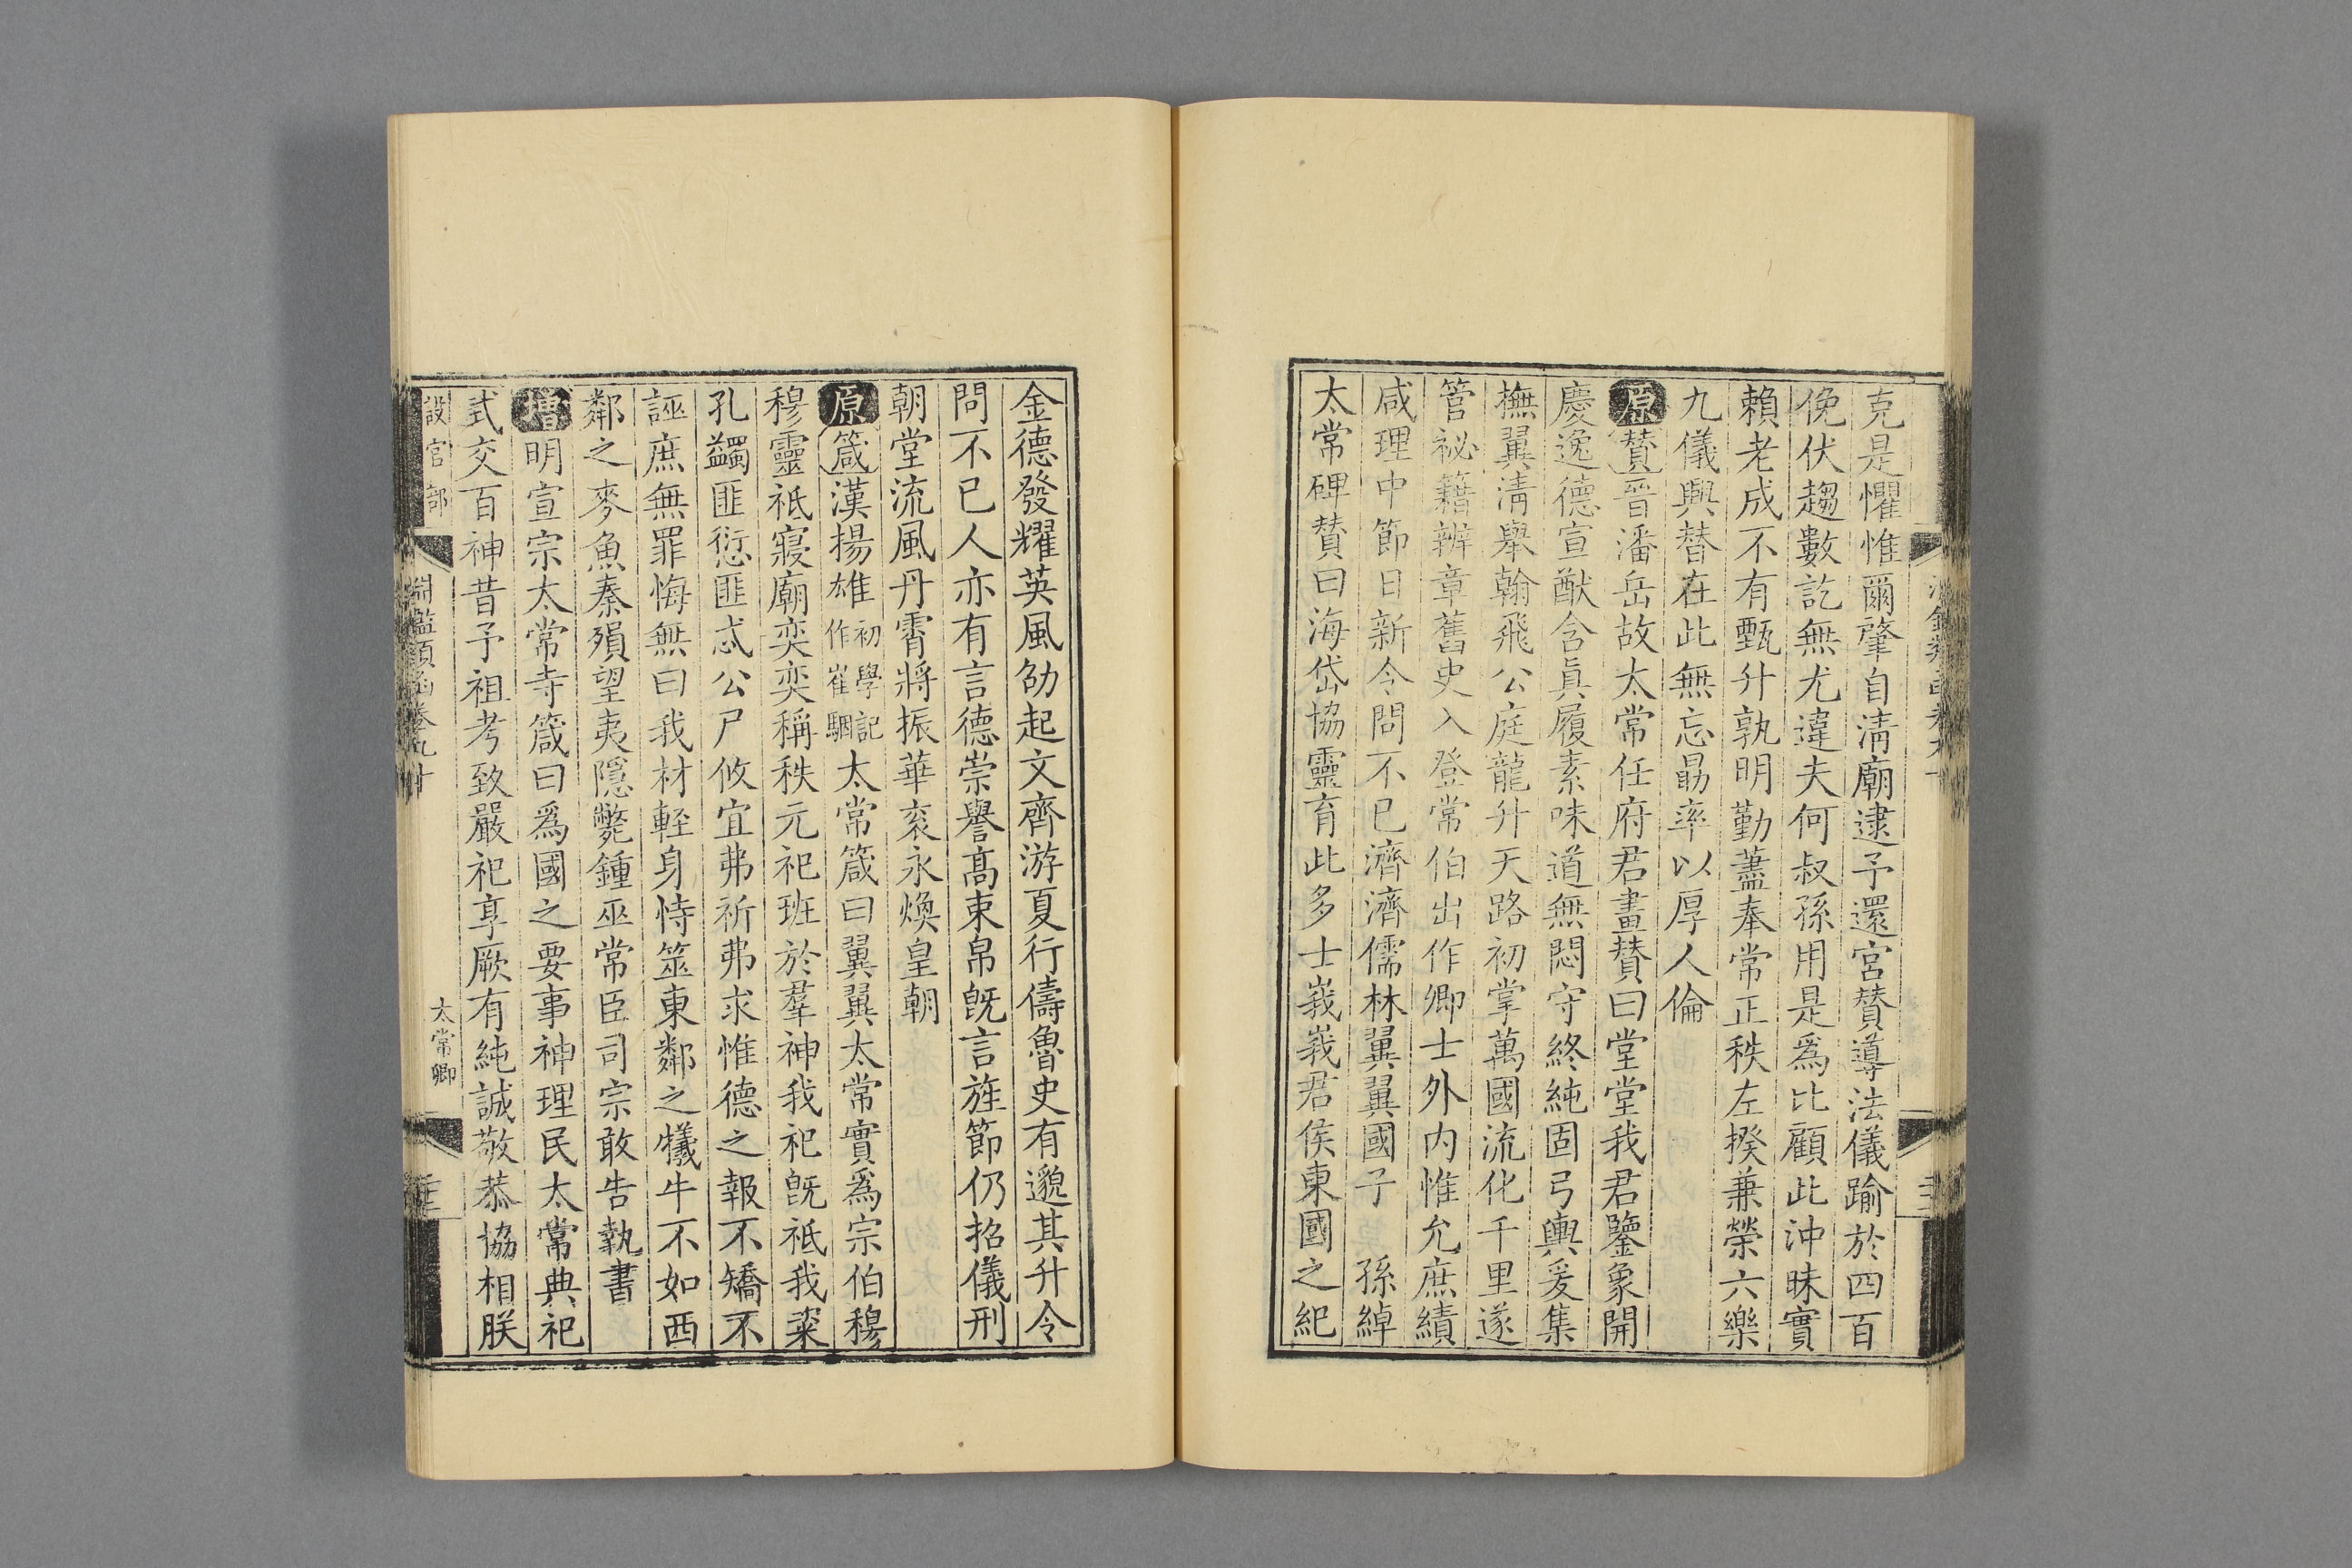 克是懼惟爾肇自淸廟逮予還宮賛導法儀踰於四百
俛伏趨數訖無尤違夫何叔孫用是爲比顧此沖昧實
賴老成不有甄升孰明勤藎奉常正秩左揆兼榮六樂
九儀興替在此無忘勗率以厚人倫
原賛晉潘岳故太常任府君畫賛曰堂堂我君鑒象開
慶逸德宣猷含眞履素味道無悶守終純固弓輿爰集
撫翼淸舉翰飛公庭龍升天路初掌萬國流化千里遂
管祕籍辨章舊史入登常伯出作卿士外内惟允庶績
咸理中節日新令問不已濟濟儒林翼翼國子 孫綽
太常碑賛曰海岱協靈育此多士峩峩君侯東國之紀
金德發耀英風劭起文齊游夏行儔魯史有邈其升令
問不已人亦有言德崇譽高束帛旣言旌節仍招儀刑
朝堂流風丹霄將振華衮永煥皇朝
原箴漢揚雄初學記作崔駰太常箴曰翼翼太常實爲宗伯穆
穆靈祗寢廟奕奕稱秩元祀班於羣神我祀旣祗我粢
孔蠲匪愆匪忒公尸攸宜弗祈弗求惟德之報不矯不
誣庶無罪悔無曰我材輕身恃筮東鄰之犧牛不如西
鄰之麥魚秦殞望夷隱斃鍾巫常臣司宗敢告執書
增明宣宗太常寺箴曰爲國之要事神理民太常典祀
式交百神昔予祖考致嚴祀享厥有純誠敬恭協相朕
設官部
淵鑑類函卷九十
太常卿